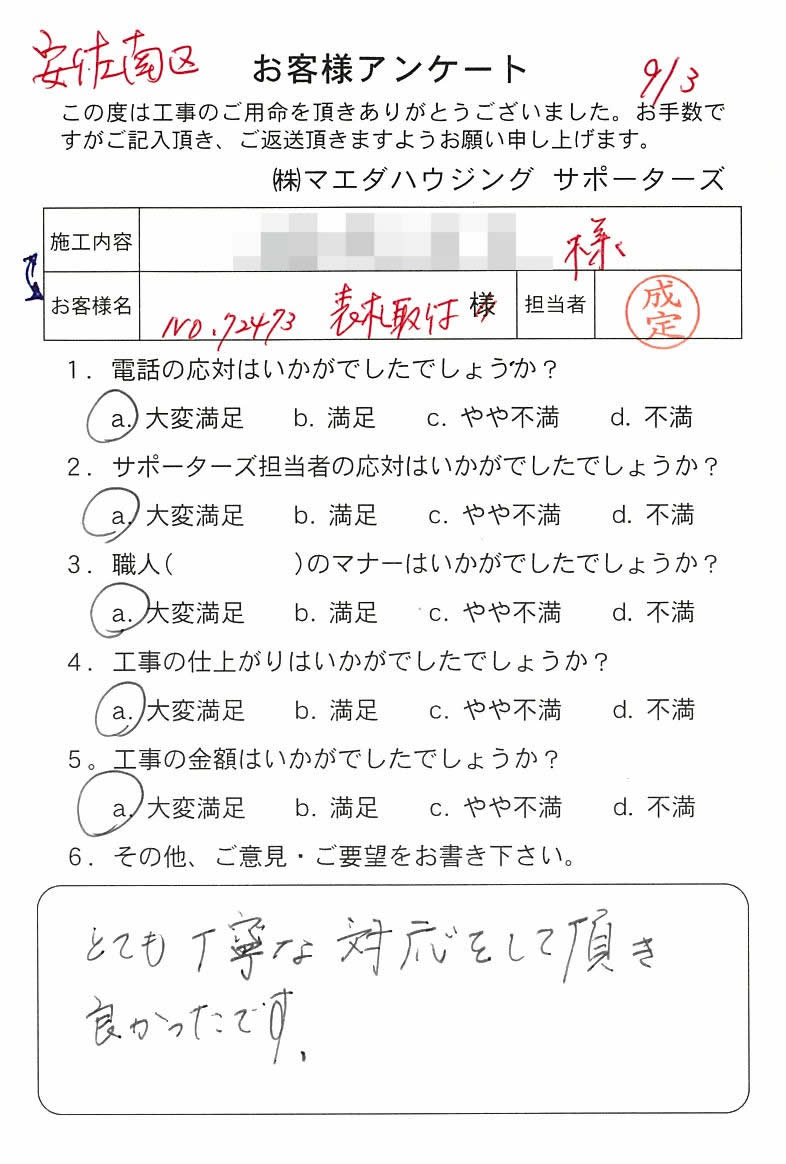 安佐南区 お客様アンケート 9/3
この度は工事のご用命を頂きありがとうございました。お手数で
すがご記入頂き、ご返送頂きますようお願い申し上げます。
㈱マエダハウジング サポーターズ
施工内容 様
お客様名 NO.72473 表札取付 様 担当者 成定
1. 電話の応対はいかがでしたでしょうか?
a. 大変満足 b. 満足 c. やや不満 d. 不満
2. サポーターズ担当者の応対はいかがでしたでしょうか?
a. 大変満足 b. 満足 c. やや不満 d. 不満
3. 職人( )のマナーはいかがでしたでしょうか?
a. 大変満足 b. 満足 c. やや不満 d. 不満
4. 工事の仕上がりはいかがでしたでしょうか?
a. 大変満足 b. 満足 c. やや不満 d. 不満
5。工事の金額はいかがでしたでしょうか?
a. 大変満足 b. 満足 c. やや不満 d. 不満
6. その他、ご意見・ご要望をお書き下さい。
とても丁寧な対応をして頂き
良かったです。